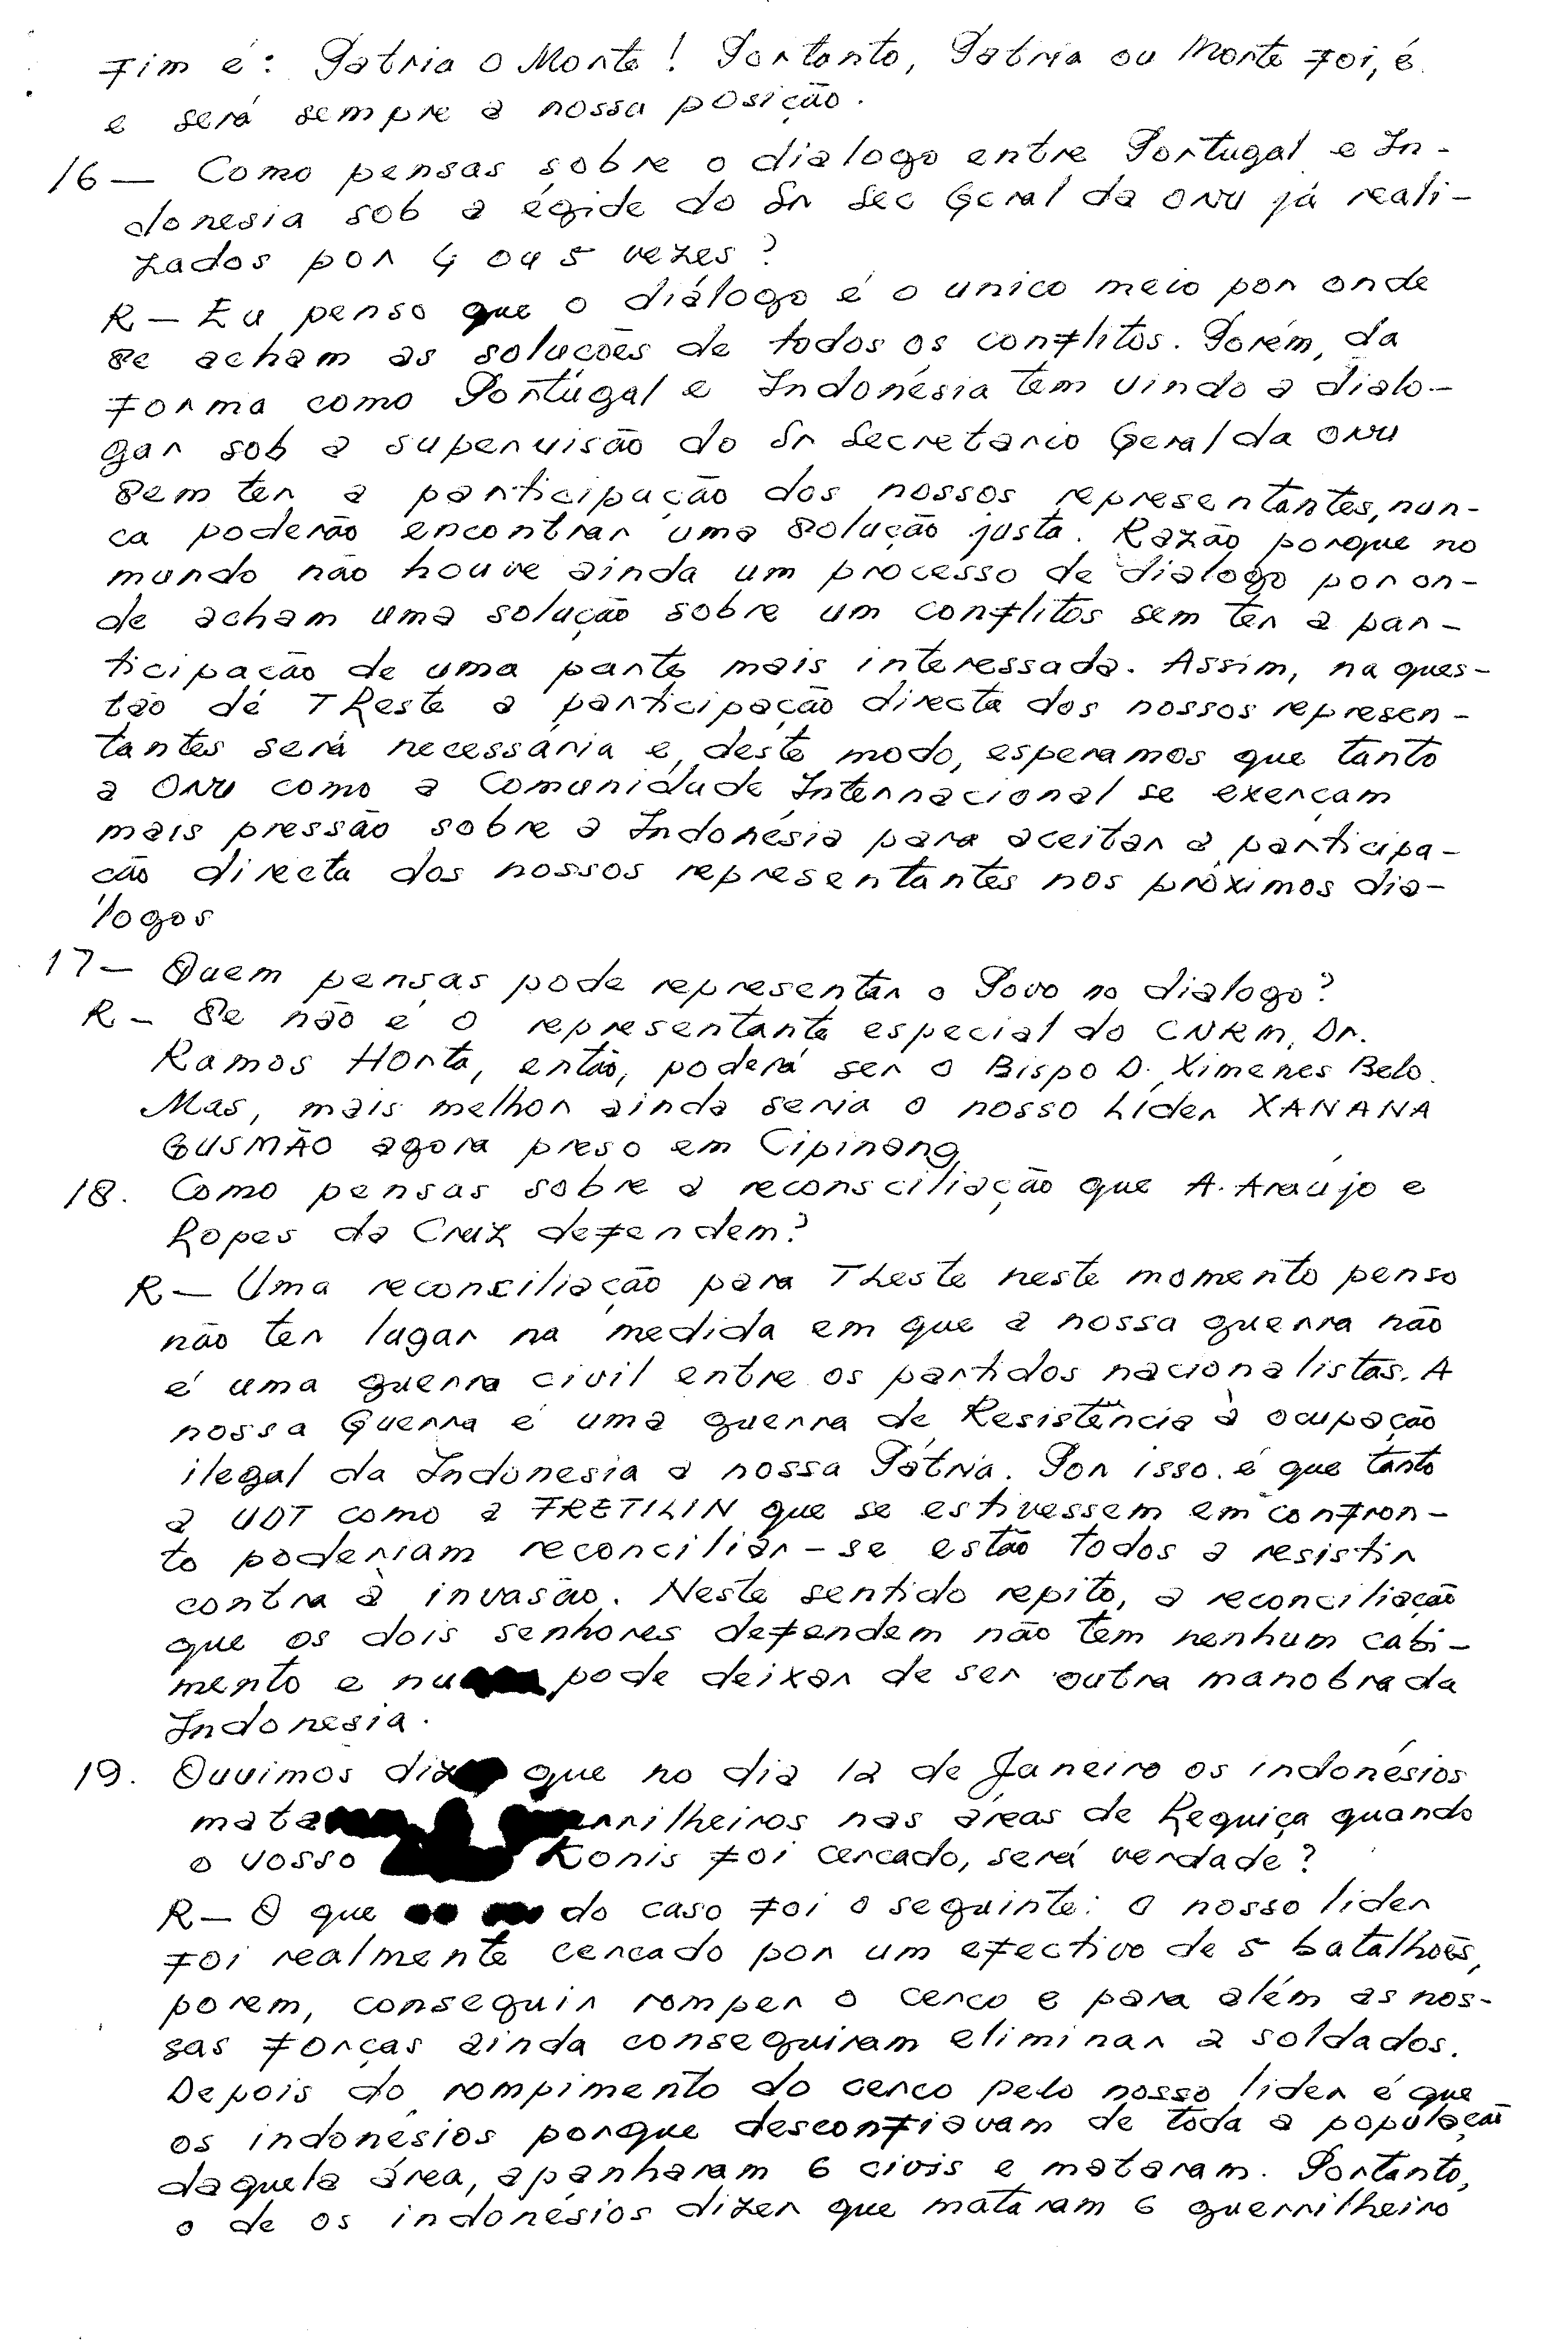 fim é: Patria o Morte! Portanto, Patria ou Morte foi, é
e será sempre a nossa posição.
16 — Como pensas sobre o dialogo entre Portugal e In-
donesia sob a égide do Sr Sec Geral da ONU já reali-
zados por 4 ou 5 vezes?
R — Eu penso que o diálogo é o unico meio por onde
se acham as soluções de todos os conflitos. Porém, da
forma como Portugal e Indonésia tem vindo a dialo-
gar sob a supervisão do Sr Secretario Geral da ONU
sem ter a participação dos nossos representantes, nun-
ca poderão encontrar uma solução justa. Razão porque no
mundo não houve ainda um processo de dialogo por on-
de acham uma solução sobre um conflitos sem ter a par-
ticipação de uma parte mais interessada. Assim, na ques-
tão de TLeste a participação directa dos nossos represen-
tantes será necessária e, deste modo, esperamos que tanto
a ONU como a Comunidade Internacional se exerçam
mais pressão sobre a Indonésia para aceitar a participa-
ção directa dos nossos representantes nos próximos diá-
logos
17 — Quem pensas pode representar o Povo no dialogo?
R — Se não é o representante especial do CNRM, Dr.
Ramos Horta, então, poderá ser o Bispo D. Ximenes Belo.
Mas, mais melhor ainda seria o nosso Lider XANANA
GUSMÃO agora preso em Cipinang
18. Como pensas sobre a reconsciliação que A. Araújo e
Lopes da Cruz defendem?
R — Uma reconsiliação para TLeste neste momento penso
não ter lugar na medida em que a nossa guerra não
é uma guerra civil entre os partidos nacionalistas. A
nossa Guerra é uma guerra de Resistência à ocupação
ilegal da Indonesia a nossa Pátria. Por isso é que tanto
a UDT como a FRETILIN que se estivessem em confron-
to poderiam reconciliar-se estão todos a resistir
contra à invasão. Neste sentido repito, a reconciliação
que os dois senhores defendem não tem nenhum cabi-
mento e nu pode deixar de ser outra manobra da
Indonesia.
19. Ouvimos diz que no dia 12 de Janeiro os indonésios
mata rrilheiros nas áreas de Lequiça quando
o vosso Konis foi cercado, será verdade?
R — O que do caso foi o seguinte: o nosso lider
foi realmente cercado por um efectivo de 5 batalhões,
porem, conseguir romper o cerco e para além as nos-
sas forças ainda conseguiram eliminar 2 soldados.
Depois do rompimento do cerco pelo nosso lider é que
os indonésios porque desconfiavam de toda a população
daquela área, apanharam 6 civis e mataram. Portanto,
o de os indonésios dizer que mataram 6 guerrilheiro